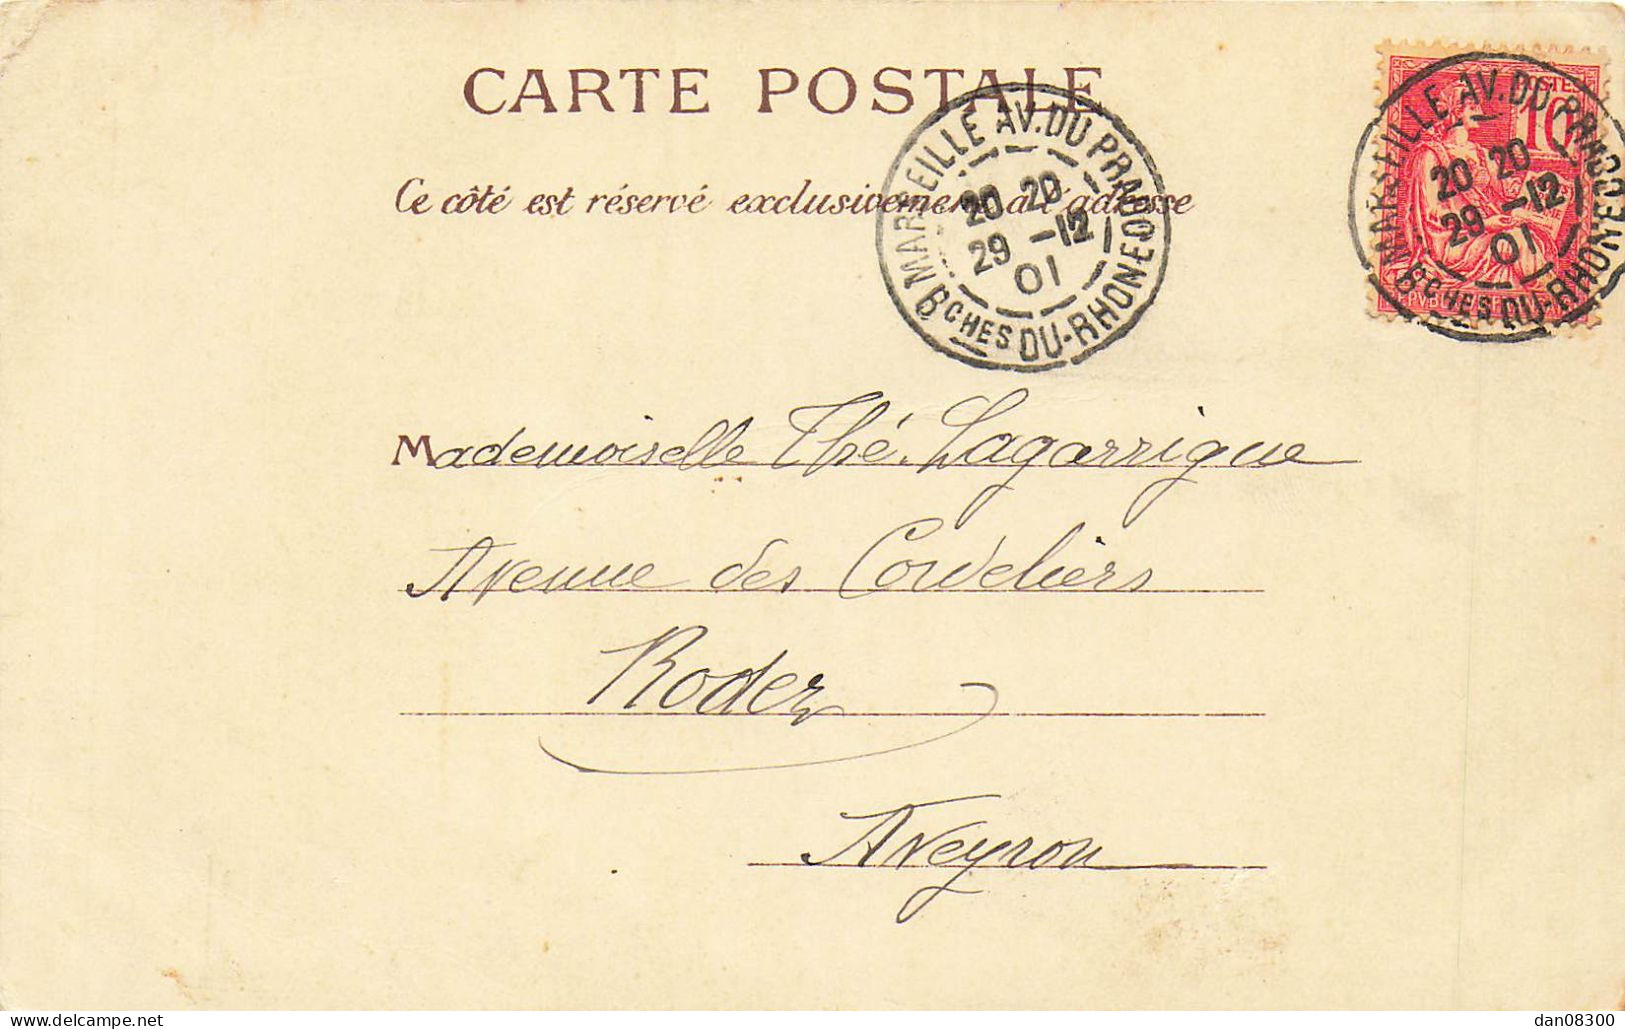 CARTE POSTALE
Ce côté est réservé exclusivement à l'adresse
MARSEILLE AV. DU PRADO
20 20
29 -12
01
BCHES DU-RHONE
POSTES
10
MARSEILLE AV. DU PRADO
20 20
29 -12
01
BCHES DU-RHONE
Mademoiselle Thé. Lagarrigue
Avenue des Cordeliers
Rodez
Aveyron
dan08300